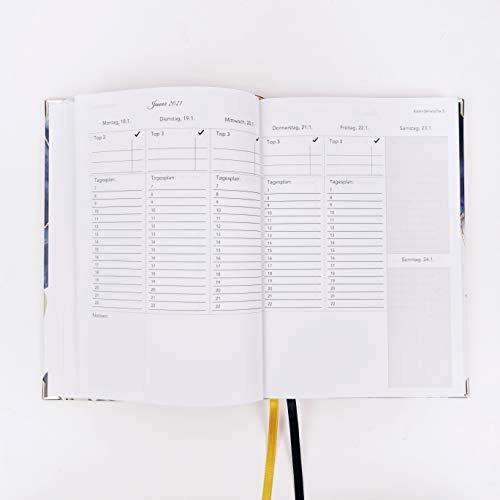 Januar 2021
Montag, 18.1.
Dienstag, 19.1.
Mittwoch, 20.1.
Top 3 ✓
Top 3 ✓
Top 3 ✓
Tagesplan:
Tagesplan:
Tagesplan:
7 7 7
8 8 8
9 9 9
10 10 10
11 11 11
12 12 12
13 13 13
14 14 14
15 15 15
16 16 16
17 17 17
18 18 18
19 19 19
20 20 20
21 21 21
22 22 22
Notizen:
Donnerstag, 21.1.
Freitag, 22.1.
Samstag, 23.1.
Top 3 ✓
Top 3 ✓
Tagesplan:
Tagesplan:
7 7
8 8
9 9
10 10
11 11
12 12
13 13
14 14
15 15
16 16
17 17
18 18
19 19
20 20
21 21
22 22
Sonntag, 24.1.